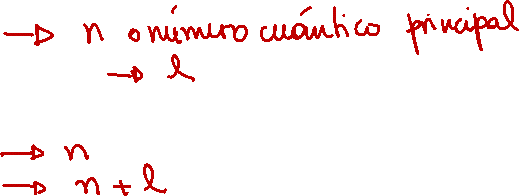 → n o número cuántico principal
→ l
→ n
→ n + l